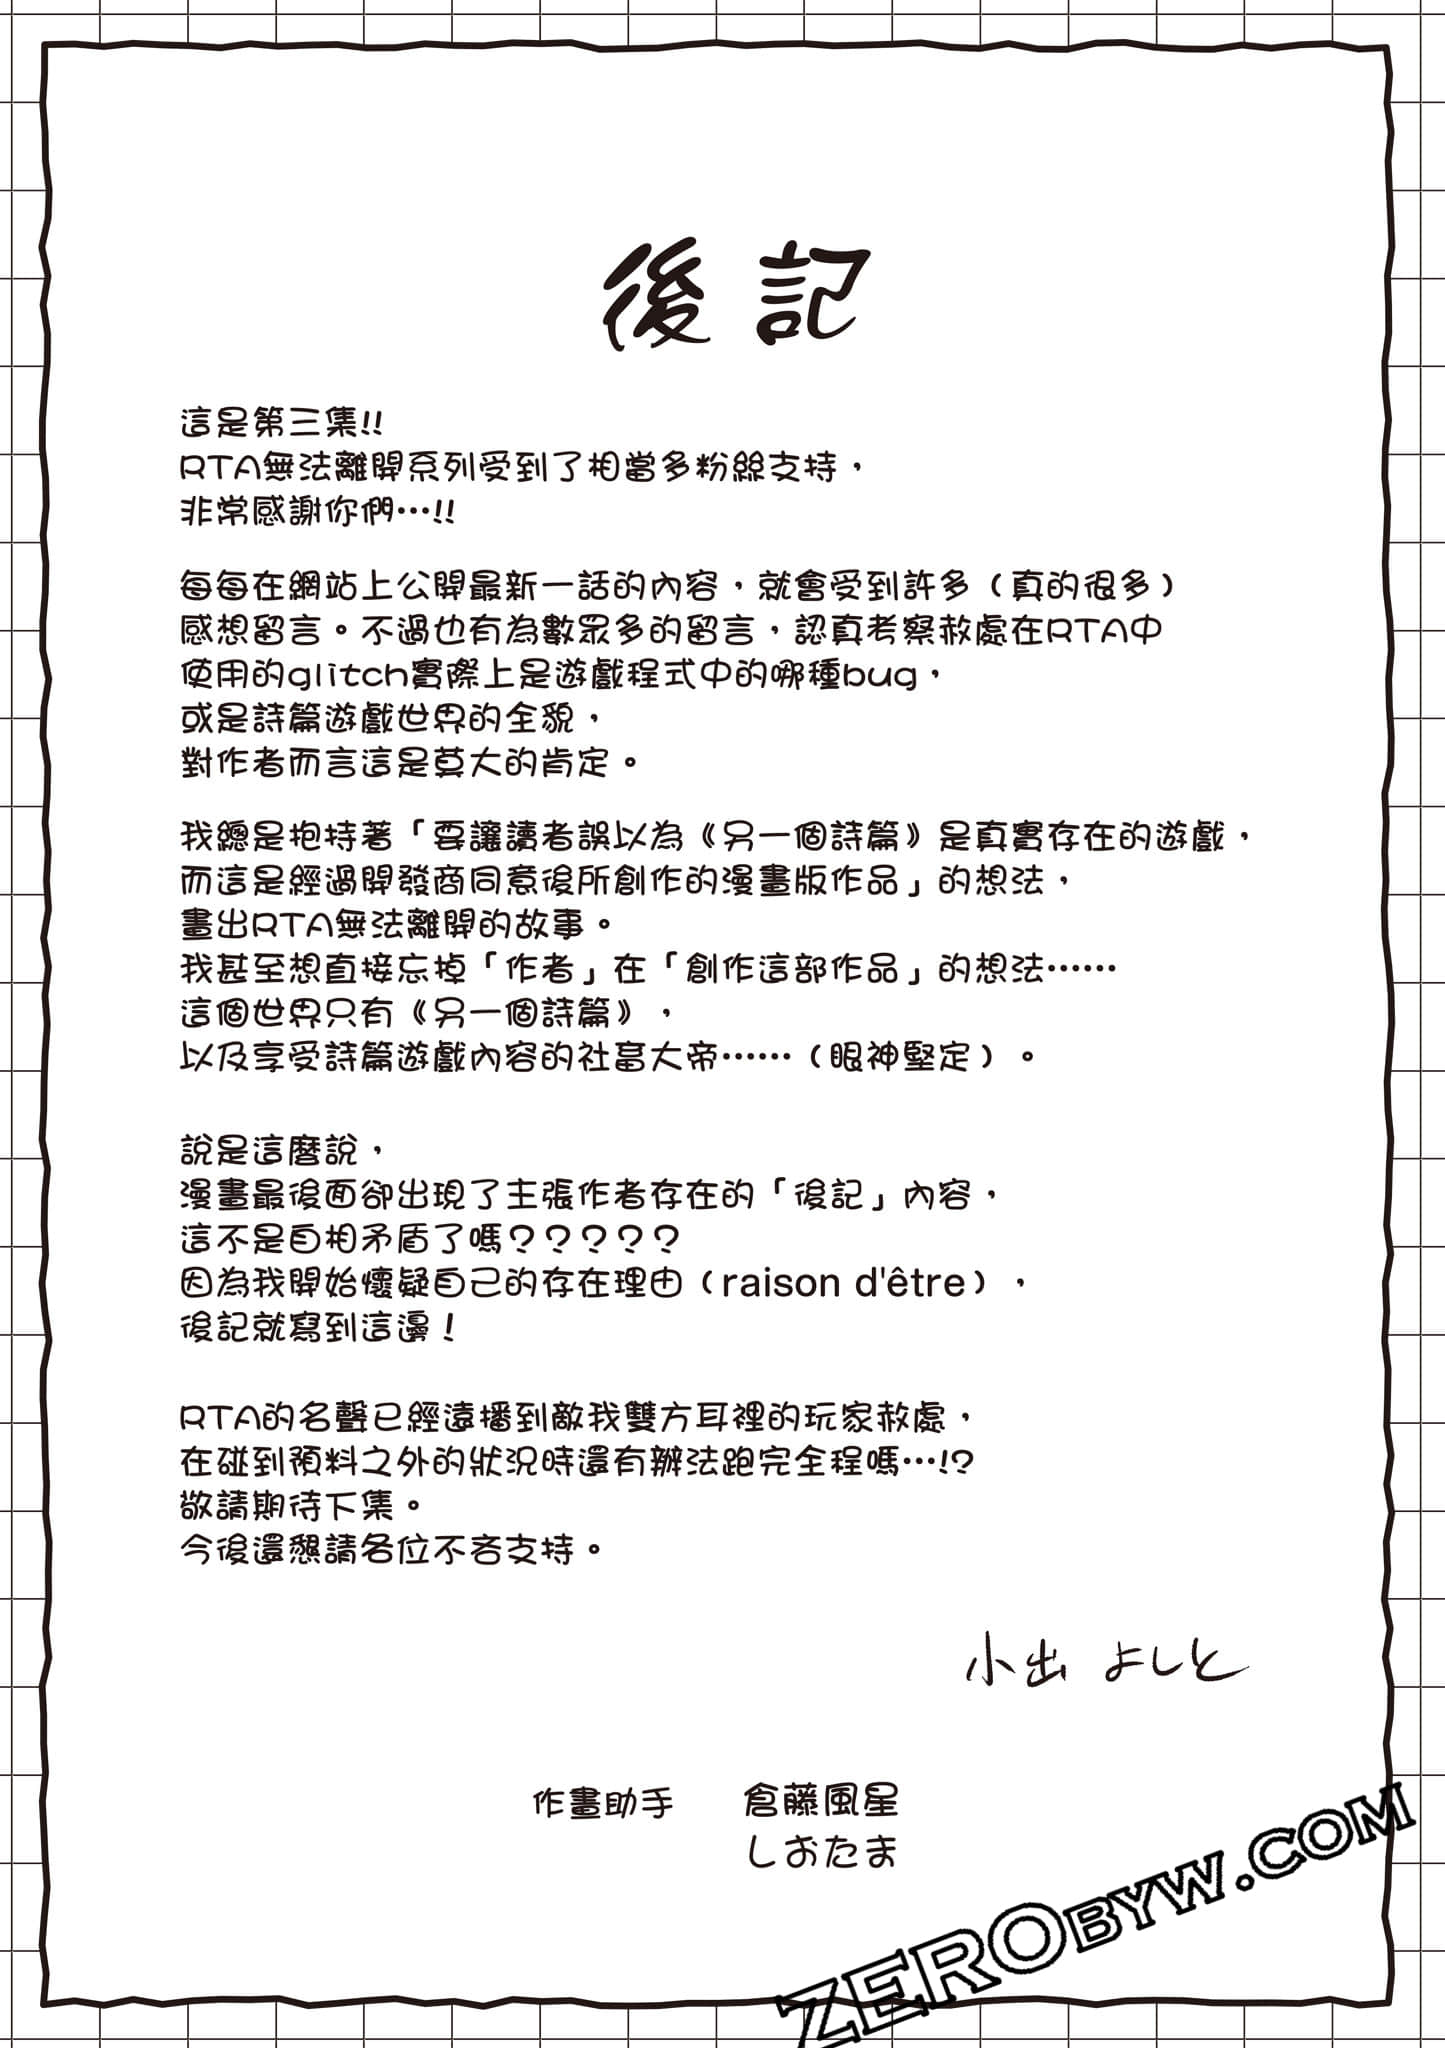 後記
這是第三集!!
RTA無法離開系列受到了相當多粉絲支持，
非常感謝你們…!!
每每在網站上公開最新一話的內容，就會受到許多（真的很多）
感想留言。不過也有為數眾多的留言，認真考察赦處在RTA中
使用的glitch實際上是遊戲程式中的哪種bug，
或是詩篇遊戲世界的全貌，
對作者而言這是莫大的肯定。
我總是抱持著「要讓讀者誤以為《另一個詩篇》是真實存在的遊戲，
而這是經過開發商同意後所創作的漫畫版作品」的想法，
畫出RTA無法離開的故事。
我甚至想直接忘掉「作者」在「創作這部作品」的想法……
這個世界只有《另一個詩篇》，
以及享受詩篇遊戲內容的社畜大帝……（眼神堅定）。
說是這麼說，
漫畫最後面卻出現了主張作者存在的「後記」內容，
這不是自相矛盾了嗎？？？？？
因為我開始懷疑自己的存在理由（raison d'être），
後記就寫到這邊！
RTA的名聲已經遠播到敵我雙方耳裡的玩家赦處，
在碰到預料之外的狀況時還有辦法跑完全程嗎…!?
敬請期待下集。
今後還懇請各位不吝支持。
小出 よしと
作畫助手 倉藤風星
しおたま
ZEROBYW.COM